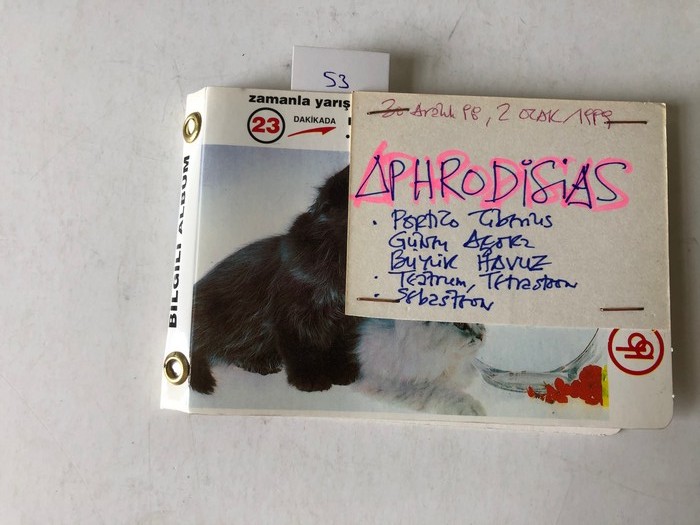 53
zamanla yarış
23 DAKİKADA
BİLGİLİ ALBÜM
30 Aralık 98, 2 OCAK/1999
APHRODİSİAS
• Portico Tiberius
Güney Agora
Büyük HAVUZ
• Teatrum, Tetrastoon
- Sebasteon